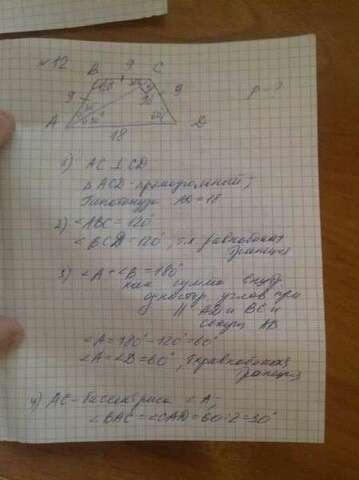 №12
B 9 C
9 9 p-?
A 18 D
1) AC ⊥ CD
△ ACD - прямоугольный;
Гипотенуза AD = 18
2) ∠ABC = 120°
∠BCD = 120°, т.к равнобокая
трапеция
3) ∠A + ∠B = 180°
как сумма внутр
одностор. углов при
|| AD и BC и
секущ AB
∠A = 180° - 120° = 60°
∠A = ∠D = 60°, равнобокая
трапеция
4) AC - биссектриса ∠A,
∠BAC = ∠CAD = 60:2 = 30°